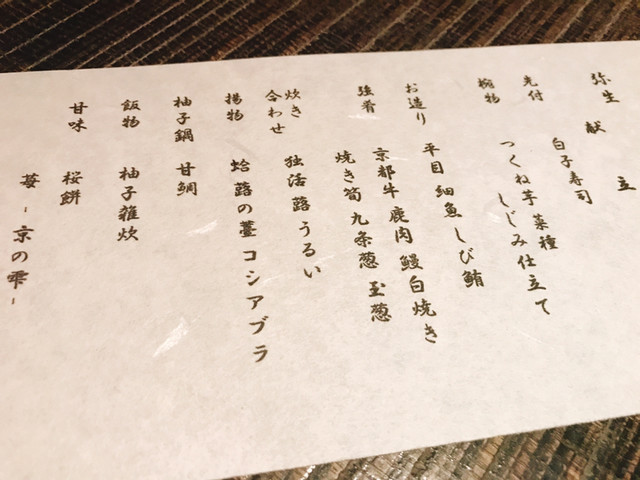 弥生 献立
先付 白子寿司
椀物 つくね芋 菜種
しじみ仕立て
お造り 平目 細魚 しび鮪
強肴 京都牛 鹿肉 鰻白焼き
焼き筍 九条葱 玉葱
炊き合わせ 独活 蕗 うるい
揚物 蛤 蕗の薹 コシアブラ
柚子鍋 甘鯛
飯物 柚子雑炊
甘味 桜餅
苺 ~京の雫~